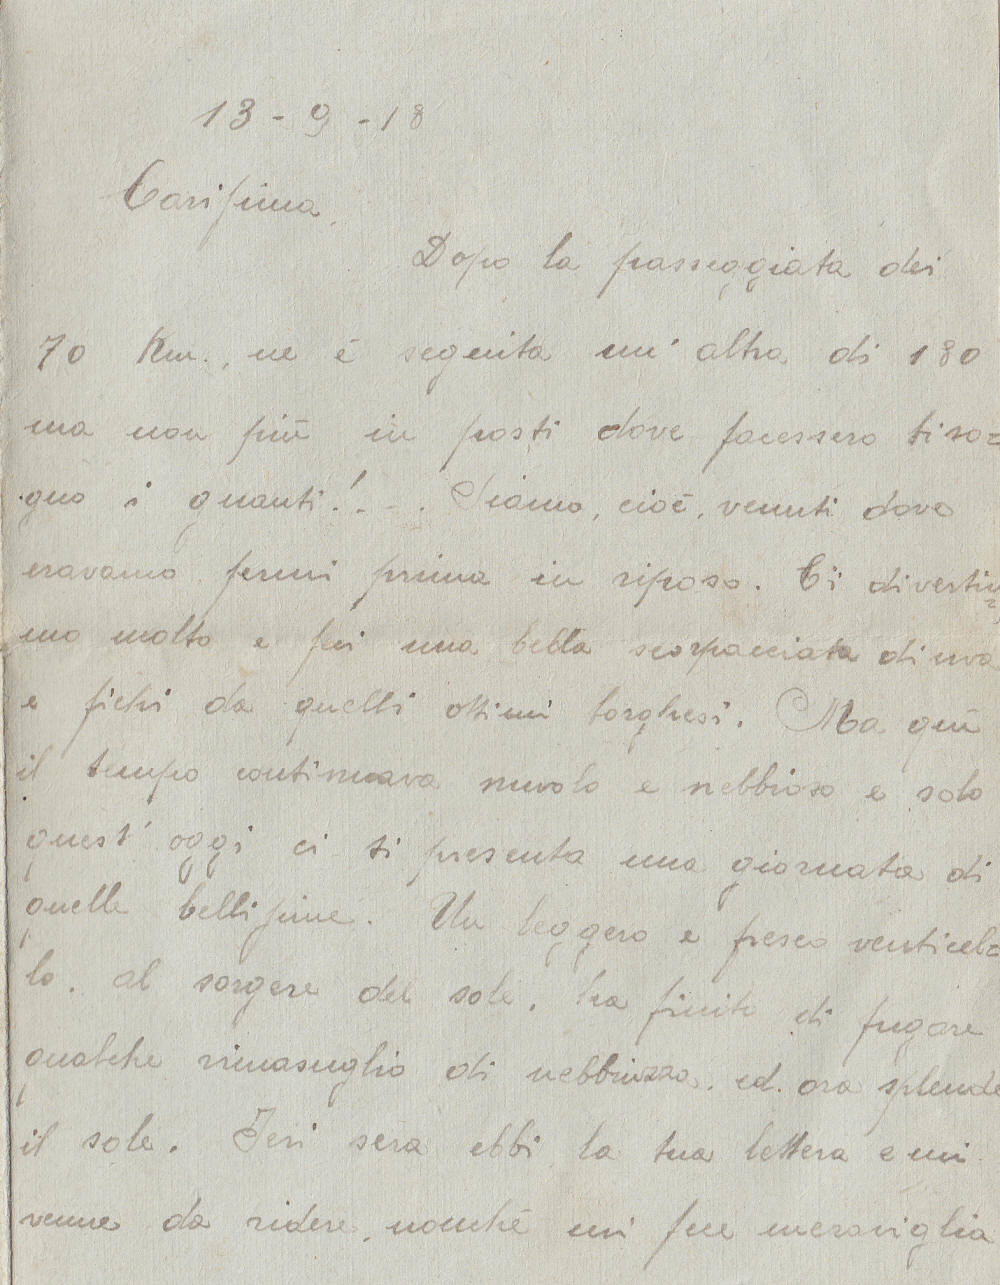 13 - 9 - 18
Carissima,
Dopo la passeggiata dei
70 Km., ne è seguita un' altra di 180
ma non più in posti dove facessero biso=
gno i guanti!... Siamo, cioè, venuti dove
eravamo fermi prima in riposo. Ci divertim=
mo molto e fei una bella scorpacciata di uva
e fichi da quelli ottimi borghesi. Ma qui
il tempo continuava nuvolo e nebbioso e solo
quest' oggi ci si presenta una giornata di
quelle bellissime. Un leggero e fresco venticel=
lo, al sorgere del sole, ha finito di fugare
qualche rimasuglio di nebbiuzza, ed ora splende
il sole. Ieri sera ebbi la tua lettera e mi
venne da ridere, nonché mi fece meraviglia